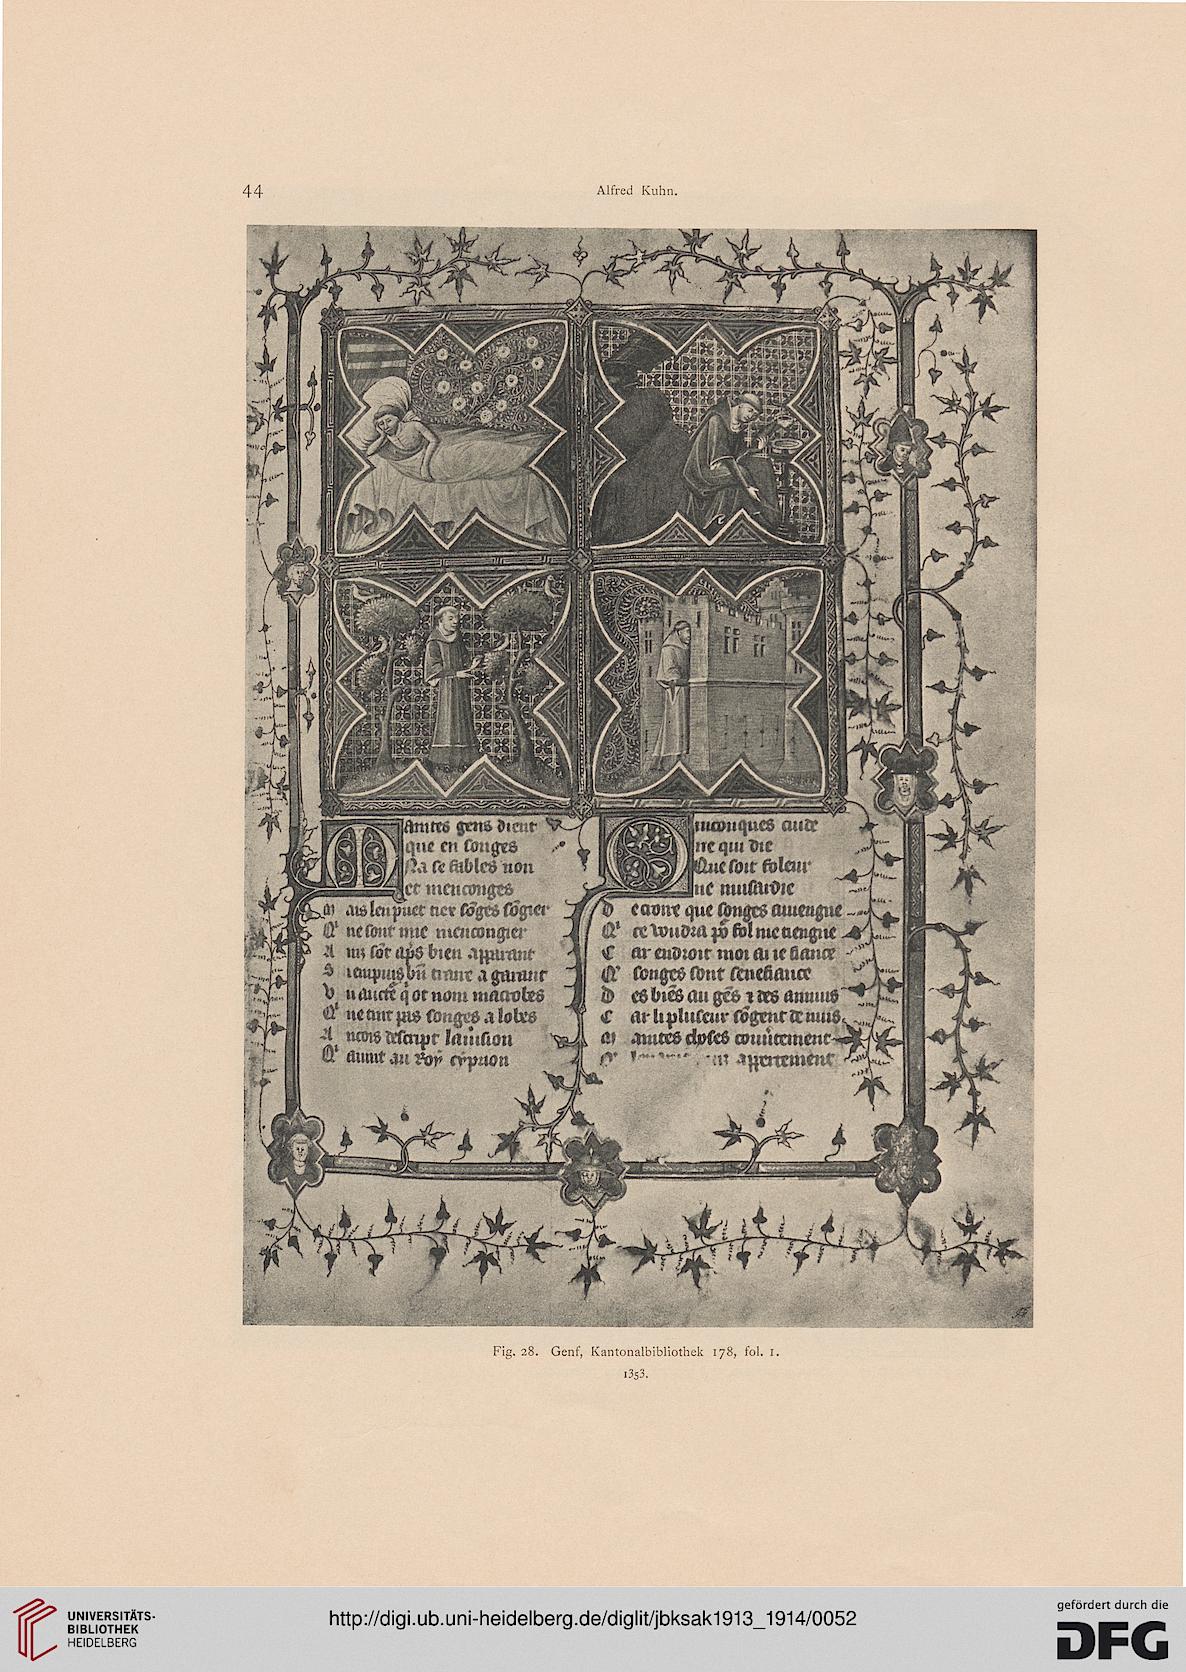 44
Alfred Kuhn.
Maintes gens dient
que en songes
Na se fables non
et menconges
Mais len puet tiex sōges sōgier
Qͥ ne sont mie mencongier
A ins sōt ap̄s bien apparant
S i en puis bn̄ traire a garant
V n aucte q̇ ot nom macrobes
Qͥ ne tint pas songes a lobes
A ncois descript lauision
Qͥ auint au roy cypion
Quiconques cuide
ne qui die
Que soit foleur
ne musardie
D e croire que songes auiengne
Qͥ ce voudra po̅ fol me tiengne
C ar endroit moi ai ie fiance
Qͥ songes sont senefiance
D es biēs au gēs ⁊ des annuis
C ar li pluseur sōgent de nuis
M aintes choses couu̇tement
appertement
Fig. 28. Genf, Kantonalbibliothek 178, fol. 1.
1353.
UNIVERSITÄTS-
BIBLIOTHEK
HEIDELBERG
http://digi.ub.uni-heidelberg.de/diglit/jbksak1913_1914/0052
gefördert durch die
DFG